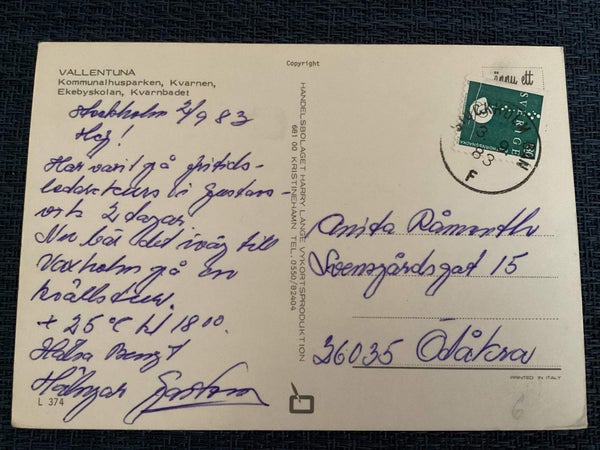 VALLENTUNA
Kommunalhusparken, Kvarnen,
Ekebyskolan, Kvarnbadet
Stockholm 2/9 83
Hej!
Har varit på fritids-
ledarekurs i Gustavs-
2 dagar.
Nu bär det iväg till
Vaxholm på en
kvällstur.
+ 25°C kl 18 00.
Hälsa Bengt
Hälsningar
L 374
Copyright
HANDELSBOLAGET HARRY LANGE VYKORTSPRODUKTION
681 00 KRISTINEHAMN TEL. 0550/82404
ännu ett
SVERIGE
STOCKHOLM BAN
3 9
83
F
Anita
Svensgårdsgat 15
26035 Ödåkra
PRINTED IN ITALY
6